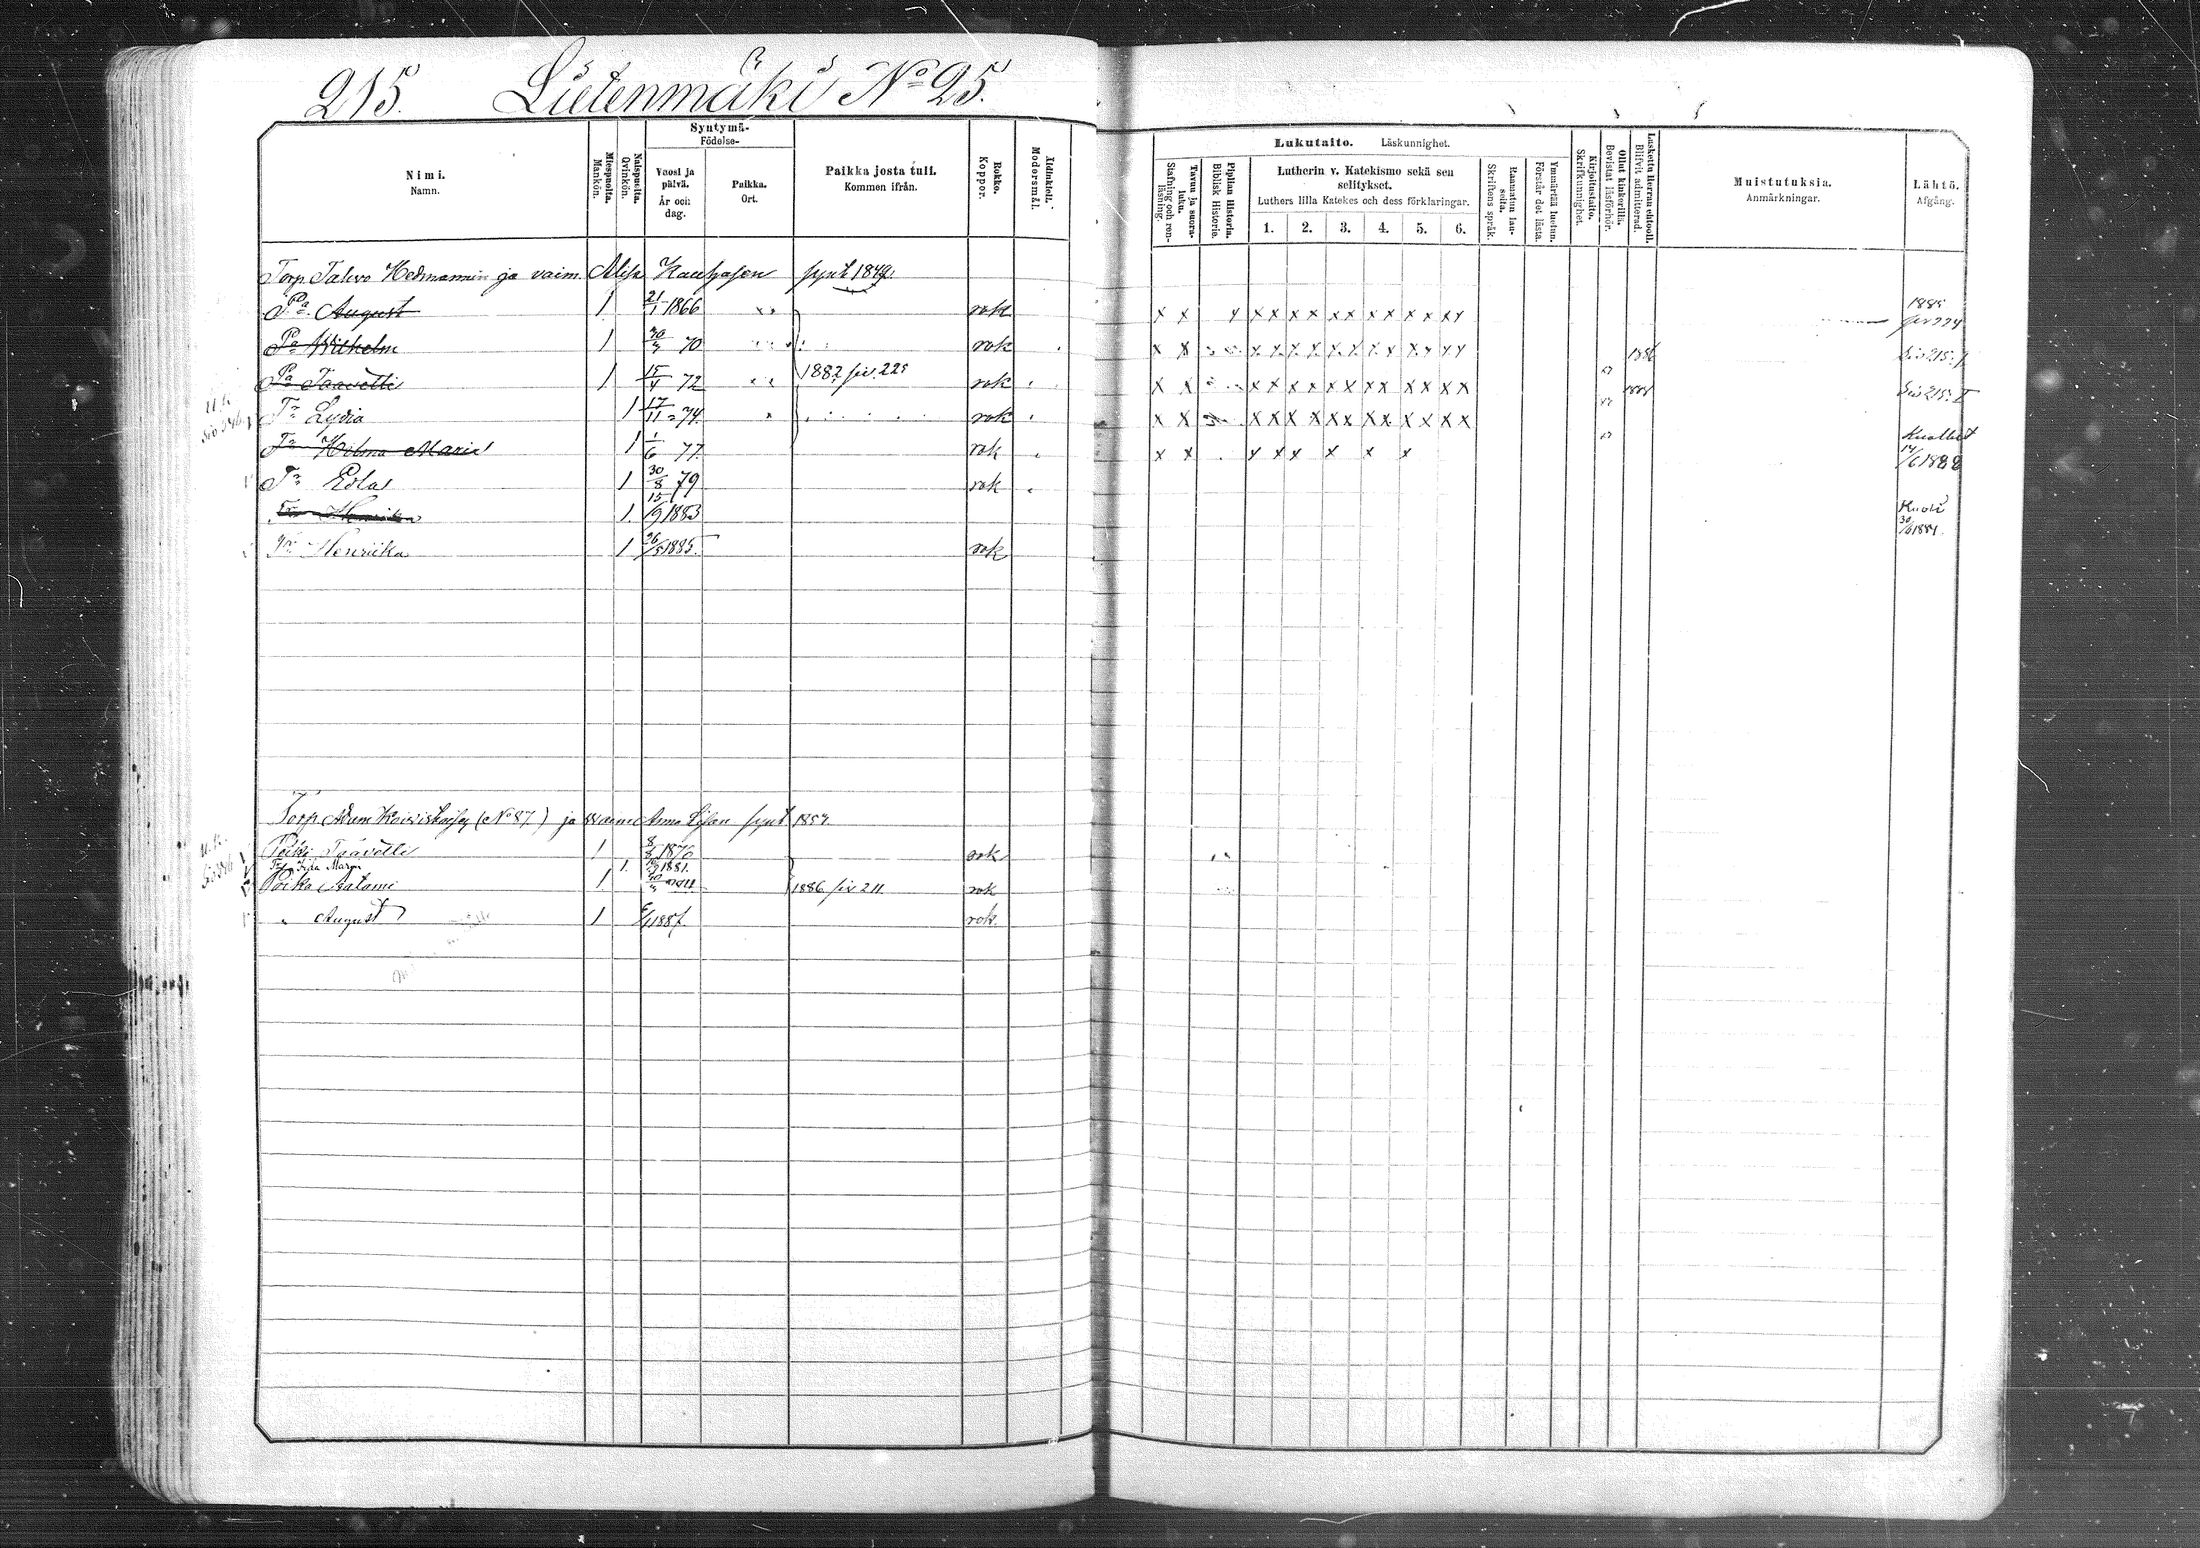 215. Lietenmäki No 25.
Nimi.
Namn.
Miespuolta.
Mankön.
Naispuolta.
Qvinkön.
Syntymä-
Födelse-
Vuosi ja päivä.
År och dag.
Paikka.
Ort.
Paikka josta tuli.
Kommen ifrån.
Rokko.
Koppor.
Äidinkieli.
Modersmål.
Lukutaito. Läskunnighet.
Tavuu ja suora-luku.
Stafning och ren-läsning.
Piplian Historia.
Biblisk Historie.
Lutherin v. Katekismo sekä sen selitykset.
Luthers lilla Katekes och dess förklaringar.
1. 2. 3. 4. 5. 6.
Raamatun lau-seita.
Skriftens språk.
Ymmärtää luetun.
Förstår det lästa.
Kirjoitustaito.
Skrifkunnighet.
Ollut kinkerillä.
Bevistat läsförhör.
Laskettu Herran ehtooll.
Blifvit admitterad.
Muistutuksia.
Anmärkningar.
Lähtö.
Afgång.
Torp. Tahvo Hedmannin ja vaim. synt 1849.
Pa August 1 21/1 1866 rok x x x x x x x x x x x x x x 1885
Pa Wilhelm 1 70 rok x x x x x x x x x x x x x x 1886 Siv 215. I
Pa Taavetti 1 15/4 72 1882 siv. 225 rok x x x x x x x x x x x x x x Siv 215. I
Tr Lydia 1 17/11 74. rok x x x x x x x x x x x x x x
Tr Hilma Maria 1 1/6 77. rok x x x x x x x x Kuollut 14/6 1888
Tr Edla 1 30/8 79 rok
Tr Henrika 1. 15/9 1883 Kuoli 30/6 1884.
Tr Henriika 1 26/5 1885. rok
Torp. Adam (No 87.) ja vaimo Anna synt 1854.
Poika Taavetti 1 8/8 1876 rok
Tyt. Fiina Maria 1. 1881.
Poika Salami 1. 1886 siv 211 rok
" August 1 rok.